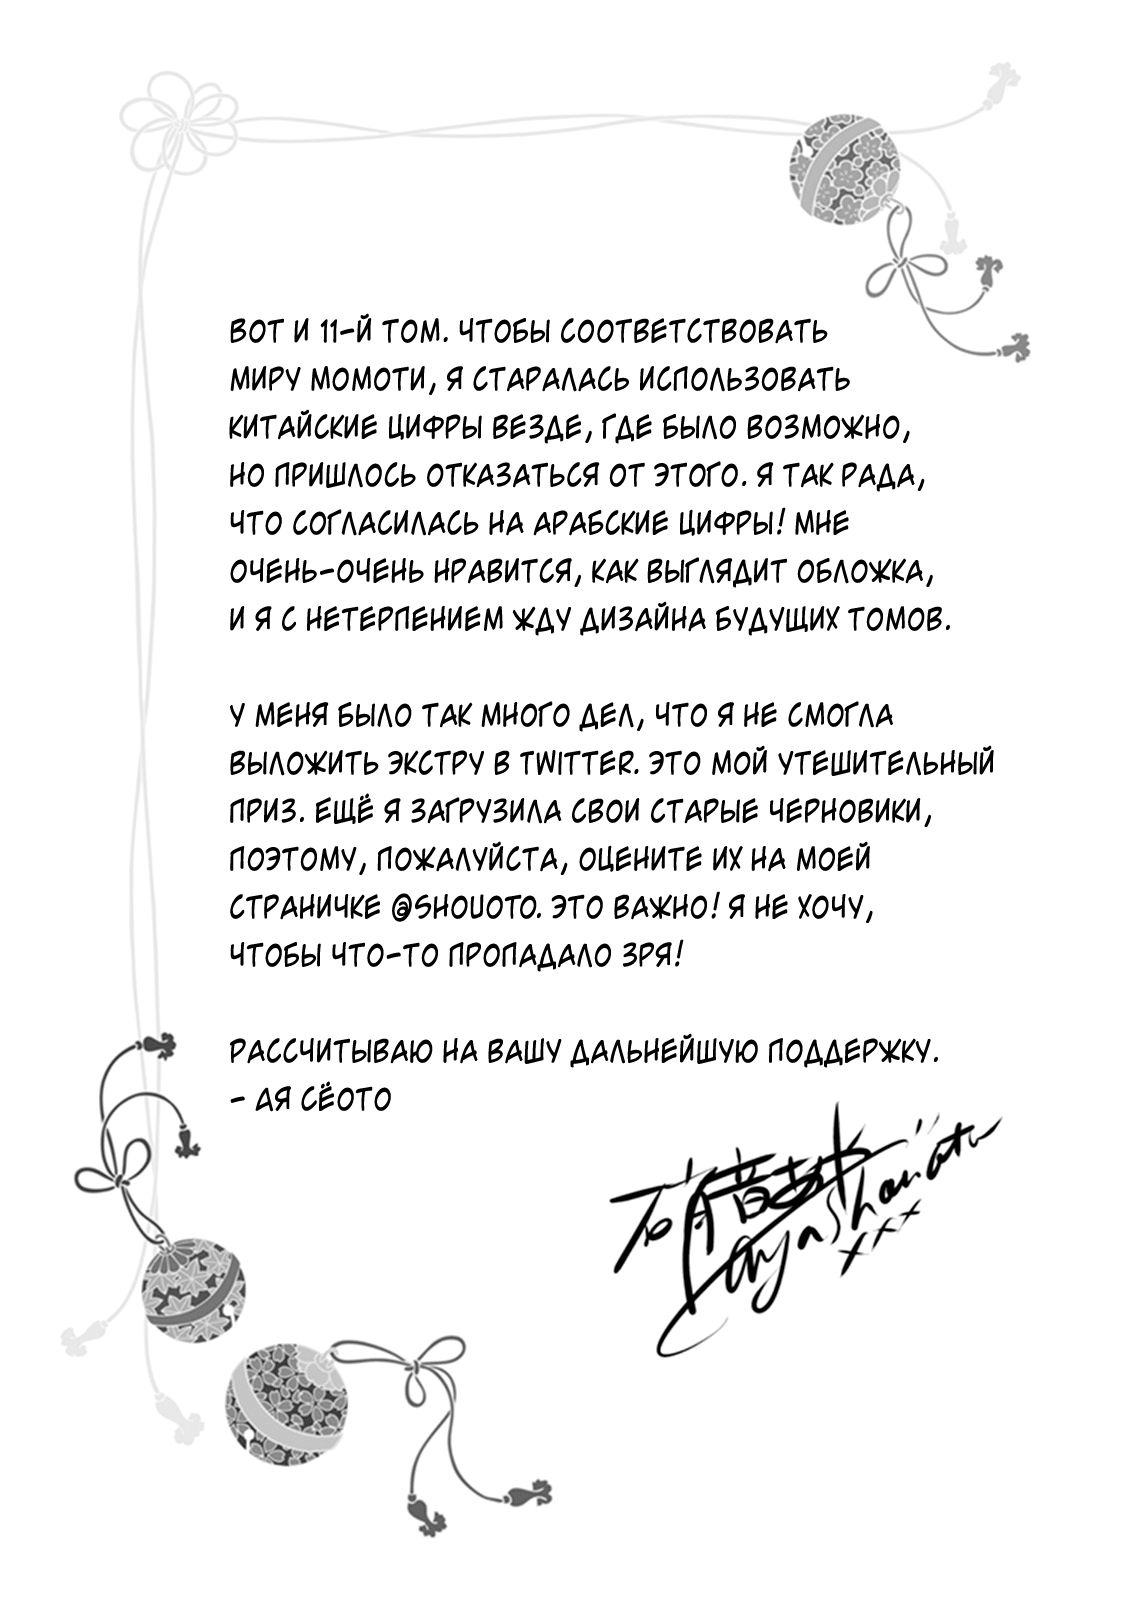 ВОТ И 11-Й ТОМ. ЧТОБЫ СООТВЕТСТВОВАТЬ
МИРУ МОМОТИ, Я СТАРАЛАСЬ ИСПОЛЬЗОВАТЬ
КИТАЙСКИЕ ЦИФРЫ ВЕЗДЕ, ГДЕ БЫЛО ВОЗМОЖНО,
НО ПРИШЛОСЬ ОТКАЗАТЬСЯ ОТ ЭТОГО. Я ТАК РАДА,
ЧТО СОГЛАСИЛАСЬ НА АРАБСКИЕ ЦИФРЫ! МНЕ
ОЧЕНЬ-ОЧЕНЬ НРАВИТСЯ, КАК ВЫГЛЯДИТ ОБЛОЖКА,
И Я С НЕТЕРПЕНИЕМ ЖДУ ДИЗАЙНА БУДУЩИХ ТОМОВ.
У МЕНЯ БЫЛО ТАК МНОГО ДЕЛ, ЧТО Я НЕ СМОГЛА
ВЫЛОЖИТЬ ЭКСТРУ В TWITTER. ЭТО МОЙ УТЕШИТЕЛЬНЫЙ
ПРИЗ. ЕЩЁ Я ЗАГРУЗИЛА СВОИ СТАРЫЕ ЧЕРНОВИКИ,
ПОЭТОМУ, ПОЖАЛУЙСТА, ОЦЕНИТЕ ИХ НА МОЕЙ
СТРАНИЧКЕ @SHOUOTO. ЭТО ВАЖНО! Я НЕ ХОЧУ,
ЧТОБЫ ЧТО-ТО ПРОПАДАЛО ЗРЯ!
РАССЧИТЫВАЮ НА ВАШУ ДАЛЬНЕЙШУЮ ПОДДЕРЖКУ.
- АЯ СЁОТО
硝音あや
Aya Shouoto
xxx